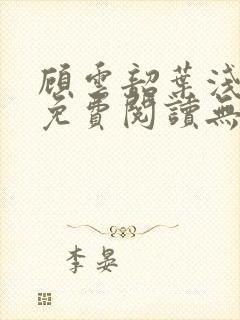 顾雲韶葉淺
免費閱讀無
李晏